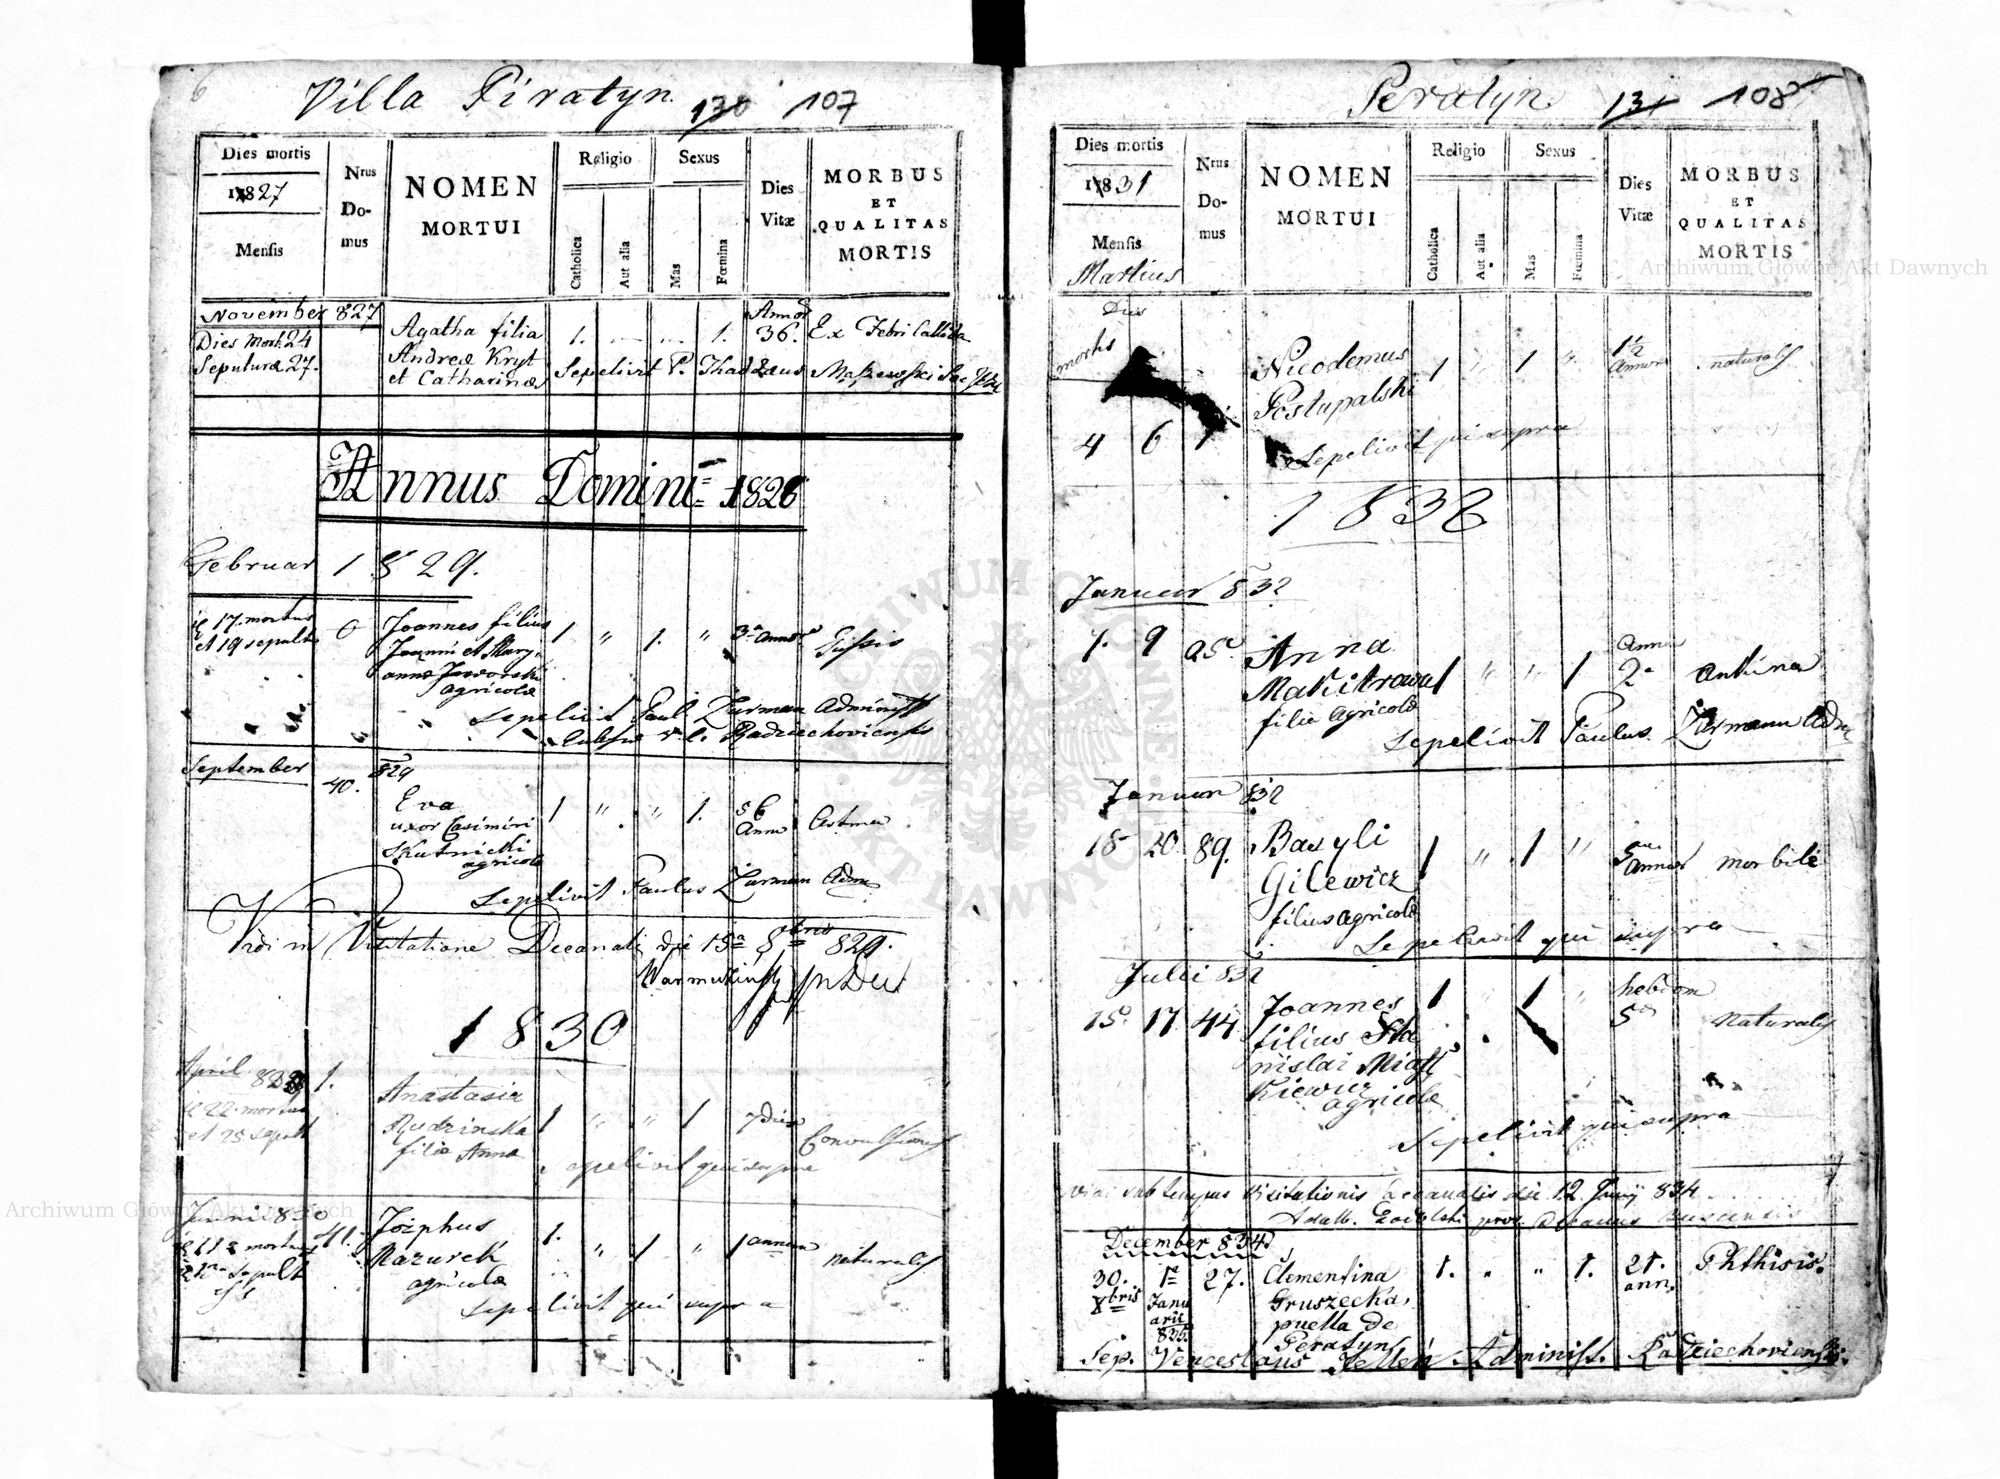 6 Villa Piratyn. 130 107
Dies mortis
1827
Mensis
Nrus
Do-
mus
NOMEN
MORTUI
Religio
Catholica
Aut alia
Sexus
Mas
Fœmina
Dies
Vitæ
MORBUS
ET
QUALITAS
MORTIS
November 827
Dies Mort. 24
Sepulturæ 27.
Agatha filia
Andreæ Kryt
et Catharinæ
1. 1.
Annor
36.
Ex Febri Callida
Sepelivit P. Thadæus
Annus Domini 1828
Februar 1829.
17. mortuus
et 19 sepult
0
Joannes filius
Joanni et Mary-
annæ Jaworski
agricolæ
1 " 1. "
3 annor
Tussis
Sepelivit Paul Zurman Administ
Radziechoviensis
September 829
40.
Eva
uxor Casimiri
Skutnicki
agricolæ
1 " " 1.
56
Ann
Astma
Sepelivit Paulus Zurman Adm
Vidi in Visitatione Decanali die 15a 8bris 829.
1830
April
1.
22. mortua
et 25 sepult
Anastasia
Rudzinska
filia Anna
1 " " 1
7 dies
Convulsionis
Sepelivit qui supra
Junni 830
41.
Josephus
Mazurek
agricolæ
1. " 1 "
1 annum
naturalis
Sepelivit qui supra
Peratyn. 131 108
Dies mortis
1831
Mensis
Martius
Nrus
Do-
mus
NOMEN
MORTUI
Religio
Catholica
Aut alia
Sexus
Mas
Fœmina
Dies
Vitæ
MORBUS
ET
QUALITAS
MORTIS
Dies
mortis
4 6
Nicodemus
Postupalski
1 " 1 "
1½
Annor
naturalis
Sepelivit qui supra
1832
Januar 832
7. 9 25.
Anna
Makitrowa
filia agricolæ
1 " " 1
Anno
2
Antina
Sepelivit Paulus Zurmann Adm
Januar 832
18 20 89.
Basyli
Gilewicz
filius agricolæ
1 " 1 "
5
Annor
morbile
Sepelivit qui supra
Julii 832
15. 17 44.
Joannes
filius Sta
nislai Miast
kiewicz
agricolæ
1 " 1 "
hebdom
5
naturalis
Sepelivit qui supra
Vidi sub tempus Visitationis Decanalis die 12 Junij 834
December 834
30. 1
Xbris Janu
arii
835
27.
Clementina
Gruszecka,
puella de
Peratyn
1. " " 1.
21.
ann.
Phthisis.
Sep. Venceslaus Administ. Radziechoviensis.
Archiwum Główne Akt Dawnych
Archiwum Główne Akt Dawnych
ARCHIWUM GŁÓWNE AKT DAWNYCH